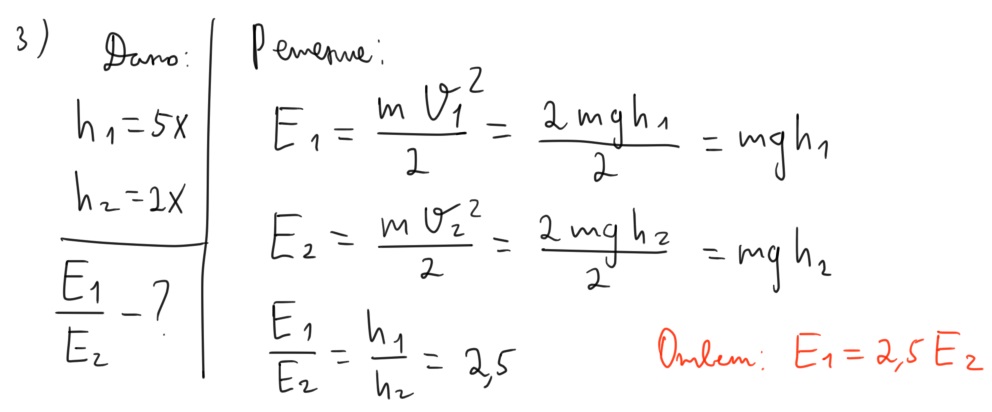 3)
Дано:
h₁ = 5x
h₂ = 2x
E₁/E₂ - ?
Решение:
E₁ = mV₁²/2 = 2mgh₁/2 = mgh₁
E₂ = mV₂²/2 = 2mgh₂/2 = mgh₂
E₁/E₂ = h₁/h₂ = 2,5
Ответ: E₁ = 2,5 E₂